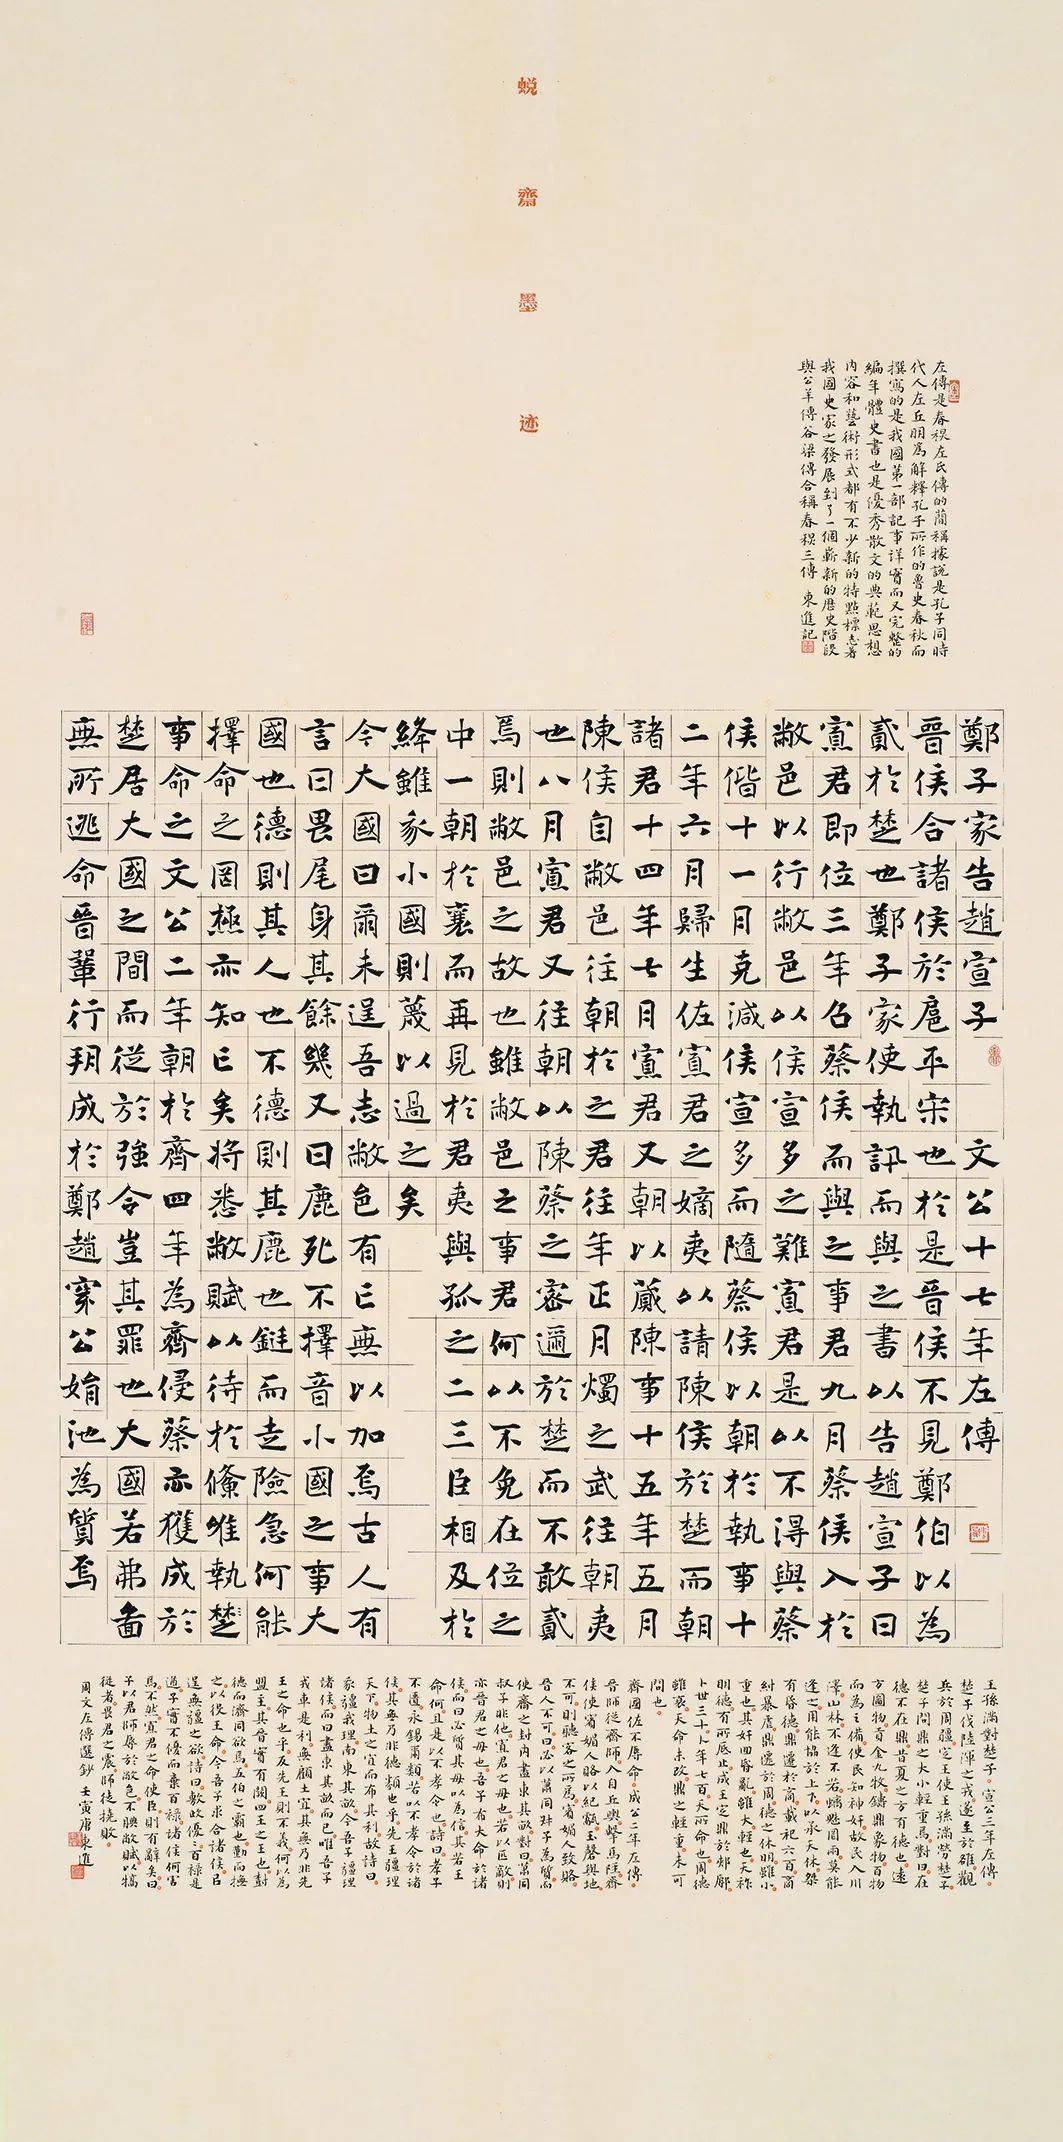 蜕齋墨迹
左傳是春秋左氏傳的簡稱據說是孔子同時
代人左丘明為解釋孔子所作的魯史春秋而
撰寫的是我國第一部記事詳實而又完整的
編年體史書也是優秀散文的典範思想
內容和藝術形式都有不少新的特點標志著
我國史家之發展到了一個嶄新的歷史階段
與公羊傳谷梁傳合稱春秋三傳 東進記
鄭子家告趙宣子 文公十七年左傳
晉侯合諸侯於扈平宋也於是晉侯不見鄭伯以為
貳於楚也鄭子家使執訊而與之書以告趙宣子曰
寡君即位三年召蔡侯而與之事君九月蔡侯入於
敝邑以行敝邑以侯宣多之難寡君是以不得與蔡
侯偕十一月克減侯宣多而隨蔡侯以朝於執事十
二年六月歸生佐寡君之嫡夷以請陳侯於楚而朝
諸君十四年七月寡君又朝以蕆陳事十五年五月
陳侯自敝邑往朝於之君往年正月燭之武往朝夷
也八月寡君又往朝以陳蔡之密邇於楚而不敢貳
焉則敝邑之故也雖敝邑之事君何以不免在位之
中一朝於襄而再見於君夷與孤之二三臣相及於
絳雖我小國則蔑以過之矣
今大國曰爾未逞吾志敝邑有亡無以加焉古人有
言曰畏尾身其餘幾又曰鹿死不擇音小國之事大
國也德則其人也不德則其鹿也鋌而走險急何能
擇命之罔極亦知亡矣將悉敝賦以待於鯈唯執楚
事命之文公二年朝於齊四年為齊侵蔡亦獲成於
楚居大國之間而從於強令豈其罪也大國若弗圖
無所逃命晉鞏行朔成於鄭趙穿公婿池為質焉
王孫滿對楚子。宣公三年左傳。
楚子伐陸渾之戎遂至於雒。觀
兵於周疆定王使王孫滿勞楚子
楚子問鼎之大小輕重焉。對曰在
德不在鼎昔夏之方有德也。遠
方圖物貢金九牧鑄鼎象物百物
而為之備使民知神奸故民入川
澤山林不逢不若螭魅罔兩莫能
逢之用能協於上下以承天休。桀
有昏德鼎遷於商。載祀六百。商
紂暴虐鼎遷於周。德之休明。雖小
重也。其奸回昏亂。雖大輕也。天祚
明德有所厎止。成王定鼎於郟鄏
卜世三十卜年七百天所命也周德
雖衰天命未改。鼎之輕重未可
問也。
齊國佐不辱命。成公二年左傳。
晉師從齊師。入自丘輿擊馬陘。齊
侯使賓媚人賂以紀甗玉磬與地
不可。則聽客之所為。賓媚人致賂
晉人不可。曰必以蕭同叔子為質而
使齊之封內盡東其畝對曰蕭同
叔子非他寡君之母也若以匹敵則
亦晉君之母也吾子布大命於諸
侯而曰必質其母以為信其若王
命何且是以不孝令也詩曰孝子
不匱永錫爾類若以不孝令於諸
侯其無乃非德類也乎先王疆理
天下物土之宜而布其利故詩曰
我疆我理南東其畝今吾子疆理
諸侯而曰盡東其畝而已唯吾子
戎車是利無顧土宜其無乃非先
王之命也乎反先王則不義何以為
盟主其晉實有闕四王之王也樹
德而濟同欲焉五伯之霸也勤而撫
之以役王命今吾子求合諸侯以
逞無疆之欲詩曰敷政優優百祿是
遒子實不優而棄百祿諸侯何害
焉不然寡君之命使臣則有辭矣曰
子以君師辱於敝邑不腆敝賦以犒
從者畏君之震師徒撓敗。
周文左傳選鈔 壬寅唐東進